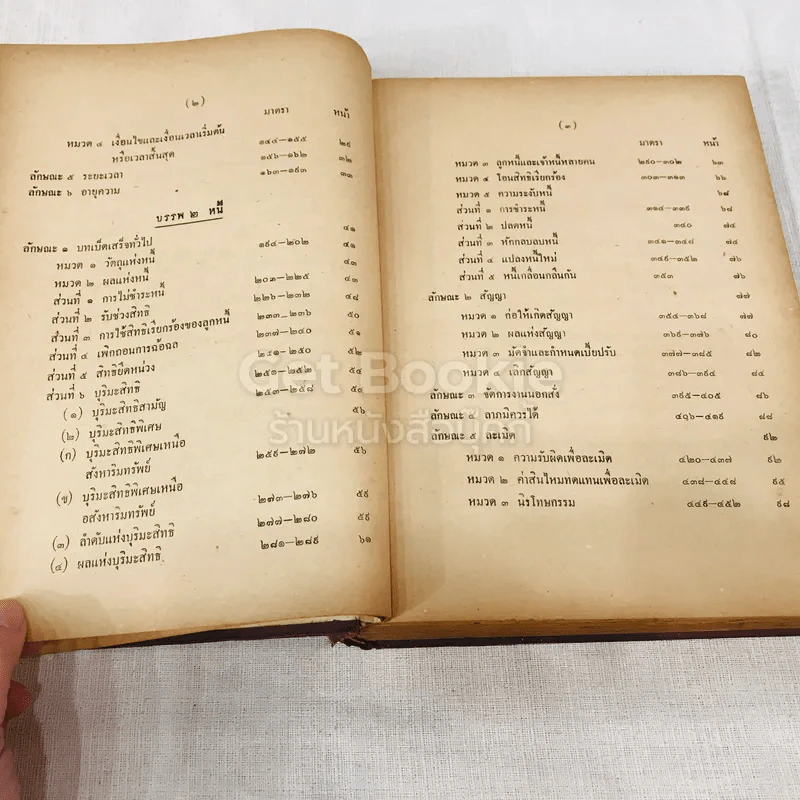 (๒)
มาตรา หน้า
หมวด ๔ เงื่อนไขและเงื่อนเวลาเริ่มต้น
หรือเวลาสิ้นสุด ๑๔๔—๑๕๕ ๒๙
ลักษณะ ๕ ระยะเวลา ๑๕๖—๑๖๒ ๓๒
ลักษณะ ๖ อายุความ ๑๖๓—๑๙๓ ๓๓
บรรพ ๒ หนี้
ลักษณะ ๑ บทเบ็ดเสร็จทั่วไป ๔๑
หมวด ๑ วัตถุแห่งหนี้ ๑๙๔—๒๐๒ ๔๑
หมวด ๒ ผลแห่งหนี้ ๔๓
ส่วนที่ ๑ การไม่ชำระหนี้ ๒๐๓—๒๒๕ ๔๓
ส่วนที่ ๒ รับช่วงสิทธิ ๒๒๖—๒๓๒ ๔๘
ส่วนที่ ๓ การใช้สิทธิเรียกร้องของลูกหนี้ ๒๓๓—๒๓๖ ๕๐
ส่วนที่ ๔ เพิกถอนการฉ้อฉล ๒๓๗—๒๔๐ ๕๑
ส่วนที่ ๕ สิทธิยึดหน่วง ๒๔๑—๒๕๐ ๕๒
ส่วนที่ ๖ บุริมะสิทธิ ๒๕๑—๒๕๒ ๕๔
(๑) บุริมะสิทธิสามัญ ๒๕๓—๒๕๘ ๕๔
(๒) บุริมะสิทธิพิเศษ ๕๖
(ก) บุริมะสิทธิพิเศษเหนือ
สังหาริมทรัพย์ ๒๕๙—๒๗๒ ๕๖
(ข) บุริมะสิทธิพิเศษเหนือ
อสังหาริมทรัพย์ ๒๗๓—๒๗๖ ๕๙
(๓) ลำดับแห่งบุริมะสิทธิ ๒๗๗—๒๘๐ ๕๙
(๔) ผลแห่งบุริมะสิทธิ ๒๘๑—๒๘๙ ๖๑
(๓)
มาตรา หน้า
หมวด ๓ ลูกหนี้และเจ้าหนี้หลายคน ๒๙๐—๓๐๒ ๖๓
หมวด ๔ โอนสิทธิเรียกร้อง ๓๐๓—๓๑๓ ๖๖
หมวด ๕ ความระงับหนี้ ๖๘
ส่วนที่ ๑ การชำระหนี้ ๓๑๔—๓๓๙ ๖๘
ส่วนที่ ๒ ปลดหนี้ ๓๔๐ ๗๔
ส่วนที่ ๓ หักกลบลบหนี้ ๓๔๑—๓๔๘ ๗๔
ส่วนที่ ๔ แปลงหนี้ใหม่ ๓๔๙—๓๕๒ ๗๖
ส่วนที่ ๕ หนี้เกลื่อนกลืนกัน ๓๕๓ ๗๖
ลักษณะ ๒ สัญญา ๗๗
หมวด ๑ ก่อให้เกิดสัญญา ๓๕๔—๓๖๘ ๗๗
หมวด ๒ ผลแห่งสัญญา ๓๖๙—๓๗๖ ๘๐
หมวด ๓ มัดจำและกำหนดเบี้ยปรับ ๓๗๗—๓๘๕ ๘๒
หมวด ๔ เลิกสัญญา ๓๘๖—๓๙๔ ๘๔
ลักษณะ ๓ จัดการงานนอกสั่ง ๓๙๕—๔๐๕ ๘๖
ลักษณะ ๔ ลาภมิควรได้ ๔๐๖—๔๑๙ ๘๘
ลักษณะ ๕ ละเมิด ๙๒
หมวด ๑ ความรับผิดเพื่อละเมิด ๔๒๐—๔๓๗ ๙๒
หมวด ๒ ค่าสินไหมทดแทนเพื่อละเมิด ๔๓๘—๔๔๘ ๙๕
หมวด ๓ นิรโทษกรรม ๔๔๙—๔๕๒ ๙๘
Get Bookie
ร้านหนังสือเก่า